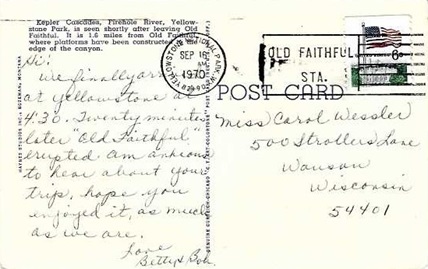 Kepler Cascades, Firehole River, Yellow-
stone Park, is seen shortly after leaving Old
Faithful. It is 1.6 miles from Old Faithful
where platforms have been constructed at the
edge of the canyon.
Hi:
We finally
at Yellowstone at
4:30. Twenty minutes
later "Old Faithful"
erupted am anxious
to hear about your
trip, hope you
enjoyed it, as much
as we are.
Love
Betty & Bob.
YELLOWSTONE NATIONAL PARK
SEP 16
1970
OLD FAITHFUL
STA.
6¢
POST CARD
Miss Carol Wessler
500 Strollers Lane
Wausau
Wisconsin
54401